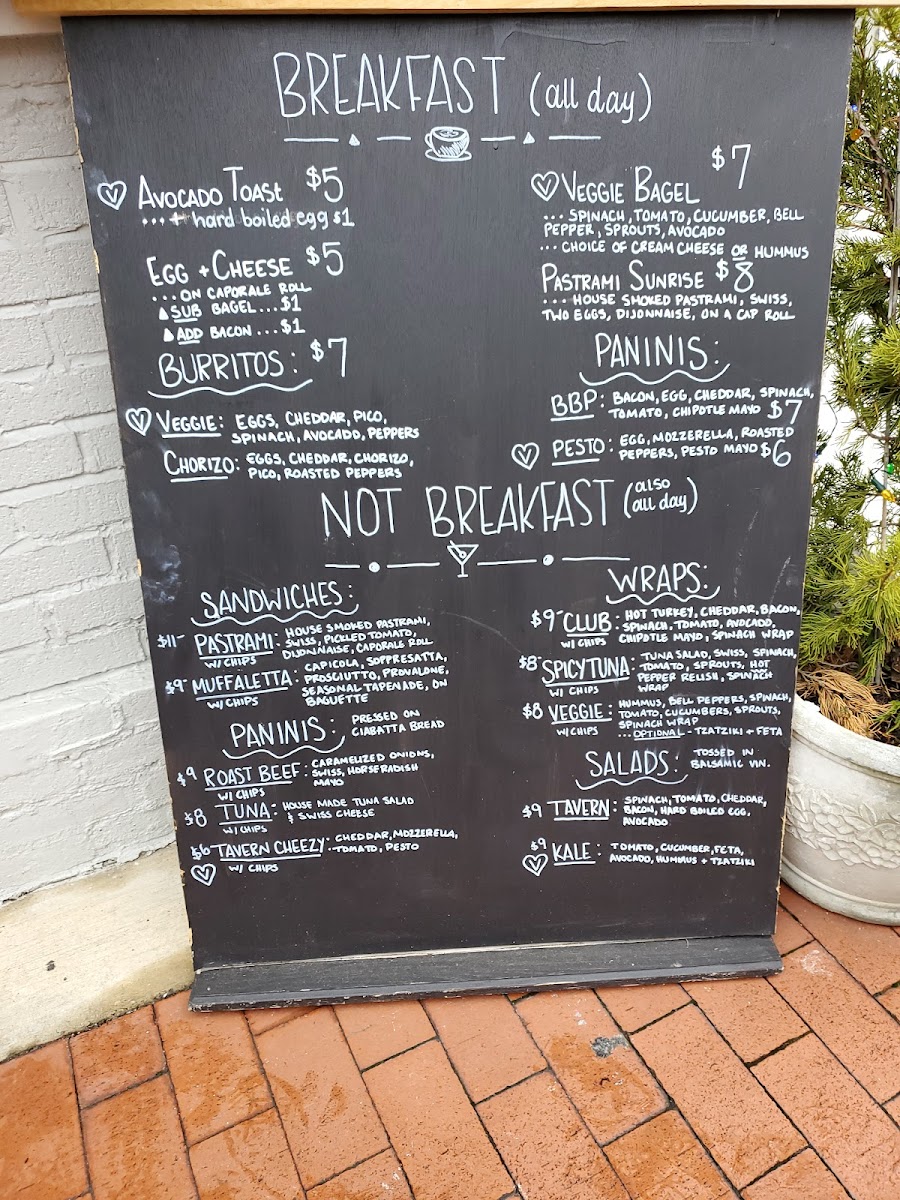 BREAKFAST (all day)
V AVOCADO TOAST $5
... + hard boiled egg $1
EGG + CHEESE $5
... ON CAPORALE ROLL
SUB BAGEL ... $1
ADD BACON ... $1
BURRITOS: $7
V VEGGIE: EGGS, CHEDDAR, PICO,
SPINACH, AVOCADO, PEPPERS
CHORIZO: EGGS, CHEDDAR, CHORIZO,
PICO, ROASTED PEPPERS
V VEGGIE BAGEL $7
... SPINACH, TOMATO, CUCUMBER, BELL
PEPPER, SPROUTS, AVOCADO
... CHOICE OF CREAM CHEESE OR HUMMUS
PASTRAMI SUNRISE $8
... HOUSE SMOKED PASTRAMI, SWISS,
TWO EGGS, DIJONNAISE, ON A CAP ROLL
PANINIS:
BBP: BACON, EGG, CHEDDAR, SPINACH,
TOMATO, CHIPOTLE MAYO $7
V PESTO: EGG, MOZZERELLA, ROASTED
PEPPERS, PESTO MAYO $6
NOT BREAKFAST (also all day)
SANDWICHES:
$11- PASTRAMI: HOUSE SMOKED PASTRAMI,
SWISS, PICKLED TOMATO,
W/ CHIPS DIJONNAISE, CAPORALE ROLL
$9- MUFFALETTA: CAPICOLA, SOPPRESATTA,
PROSCIUTTO, PROVALONE,
W/ CHIPS SEASONAL TAPENADE, ON
BAGUETTE
PANINIS: PRESSED ON
CIABATTA BREAD
$9 ROAST BEEF: CARAMELIZED ONIONS,
SWISS, HORSERADISH
W/ CHIPS MAYO
$8 TUNA: HOUSE MADE TUNA SALAD
W/ CHIPS & SWISS CHEESE
$6- TAVERN CHEEZY: CHEDDAR, MOZZERELLA,
TOMATO, PESTO
V W/ CHIPS
WRAPS:
$9- CLUB: HOT TURKEY, CHEDDAR, BACON,
SPINACH, TOMATO, AVOCADO,
W/ CHIPS CHIPOTLE MAYO, SPINACH WRAP
$8- SPICY TUNA: TUNA SALAD, SWISS, SPINACH,
TOMATO, SPROUTS, HOT
W/ CHIPS PEPPER RELISH, SPINACH
WRAP
$8 VEGGIE: HUMMUS, BELL PEPPERS, SPINACH,
TOMATO, CUCUMBERS, SPROUTS,
W/ CHIPS SPINACH WRAP
... OPTIONAL - TZATZIKI + FETA
SALADS: TOSSED IN
BALSAMIC VIN.
$9 TAVERN: SPINACH, TOMATO, CHEDDAR,
BACON, HARD BOILED EGG,
AVOCADO
$9 V KALE: TOMATO, CUCUMBER, FETA,
AVOCADO, HUMMUS + TZATZIKI